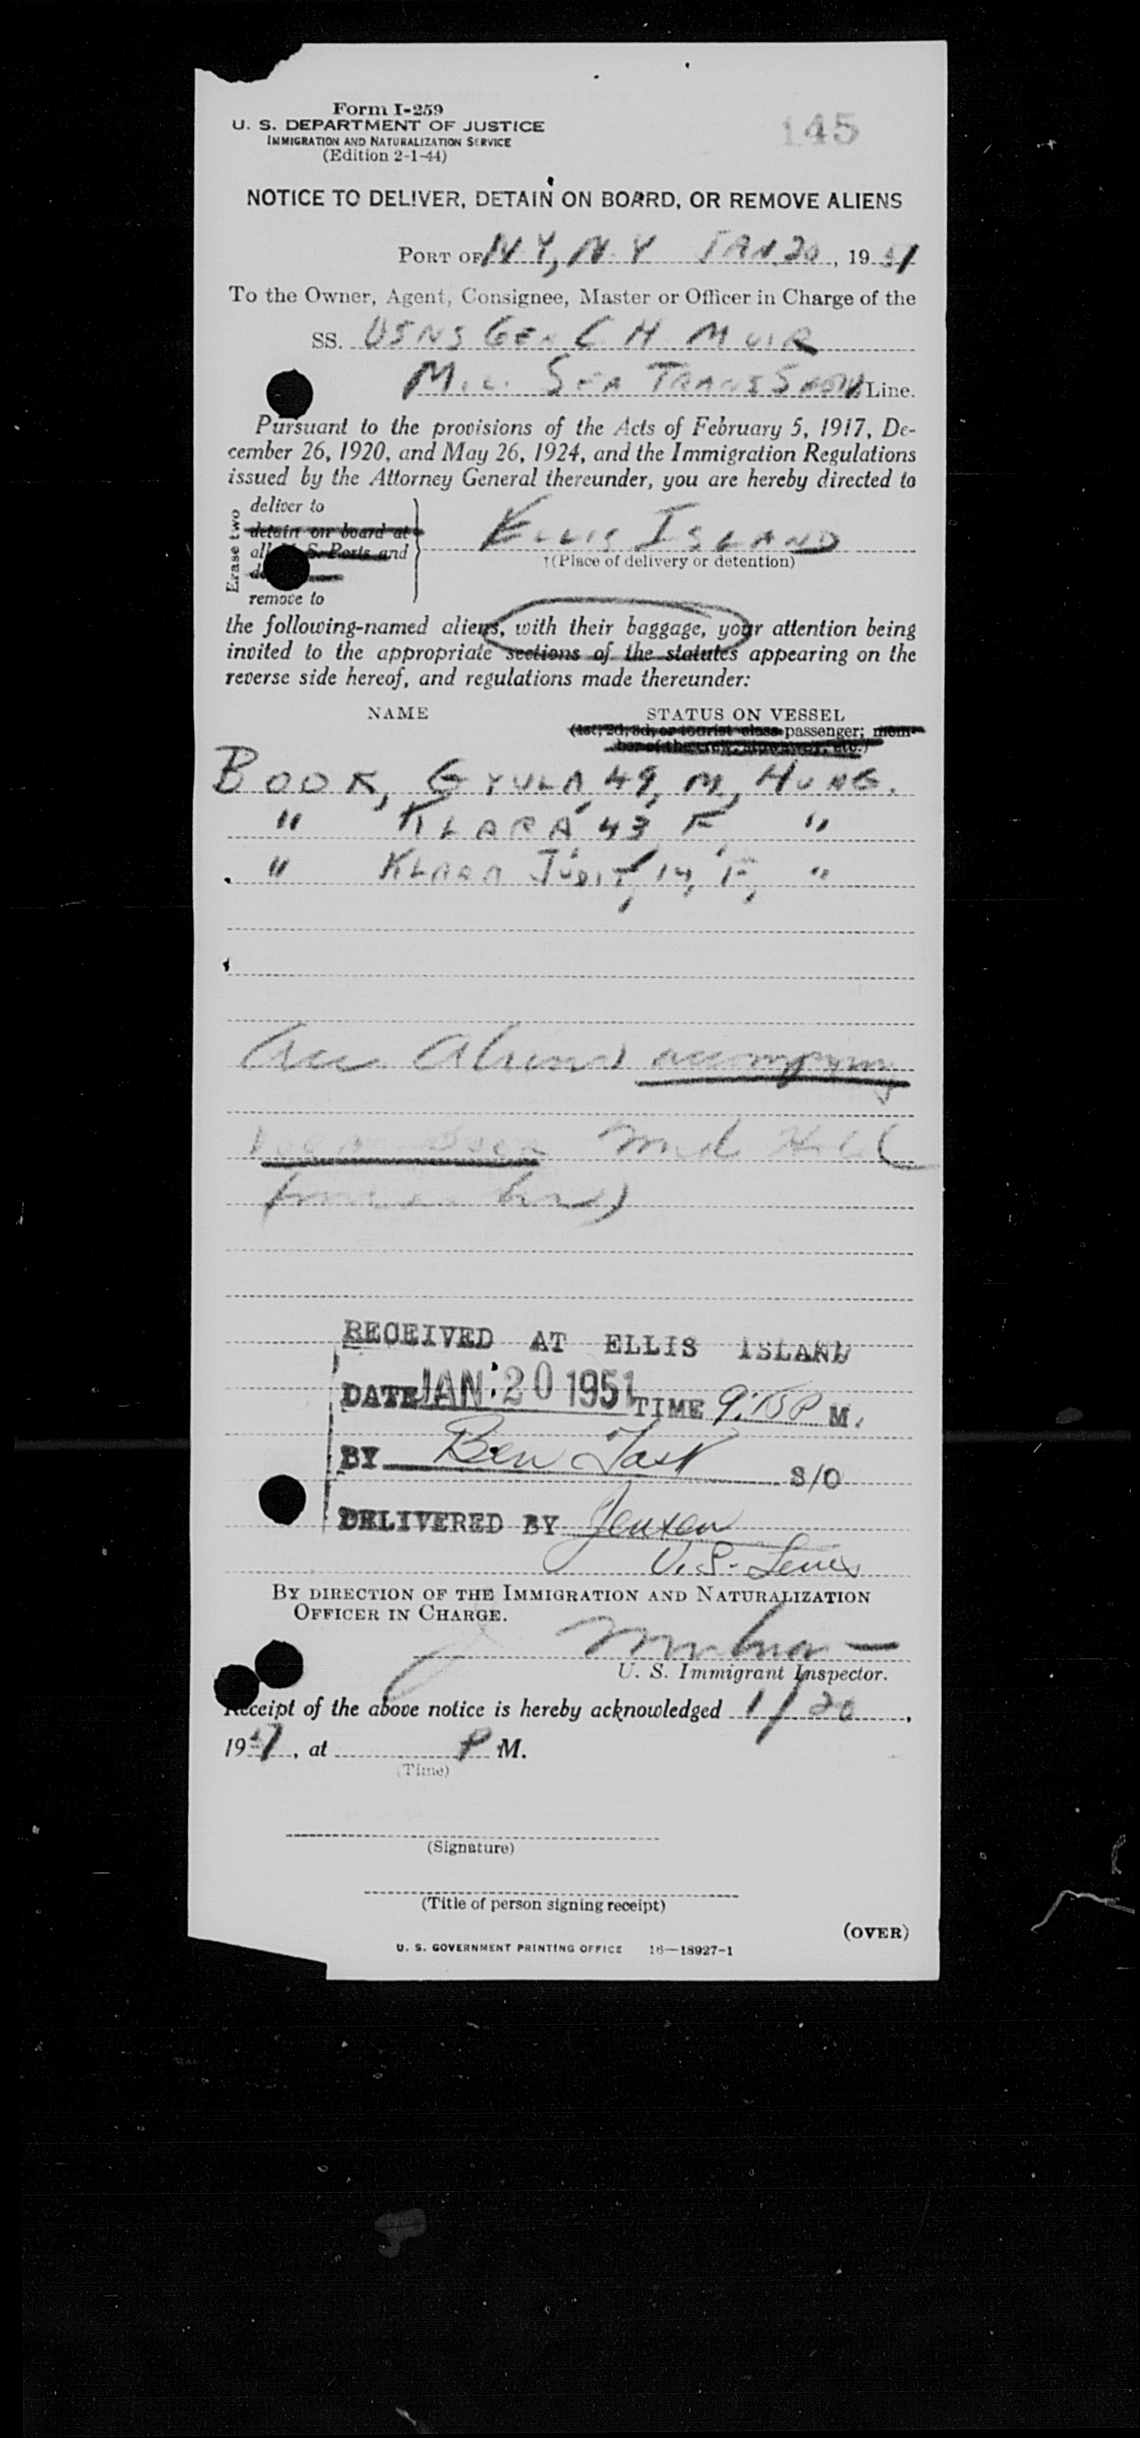 Form I-259
U. S. DEPARTMENT OF JUSTICE
IMMIGRATION AND NATURALIZATION SERVICE
(Edition 2-1-44)
145
NOTICE TO DELIVER, DETAIN ON BOARD, OR REMOVE ALIENS
PORT OF N.Y., N.Y JAN. 20, 1951
To the Owner, Agent, Consignee, Master or Officer in Charge of the
SS. USNS GEN C H MUIR
MIL SEA TRANS Line.
Pursuant to the provisions of the Acts of February 5, 1917, De-
cember 26, 1920, and May 26, 1924, and the Immigration Regulations
issued by the Attorney General thereunder, you are hereby directed to
Erase two
deliver to
detain on board at
all U. S. Ports and
remove to
ELLIS ISLAND
†(Place of delivery or detention)
the following-named aliens, with their baggage, your attention being
invited to the appropriate sections of the statutes appearing on the
reverse side hereof, and regulations made thereunder:
NAME STATUS ON VESSEL
(1st, 2d, 3d, or tourist class passenger; mem-
ber of the crew, stowaway, etc.)
BOOK, GYULA, 49, M, HUNG.
" KLARA, 43, F, "
" KLARA JUDIT, 14, F, "
Aliens accompany
Med Hold
RECEIVED AT ELLIS ISLAND
DATE JAN 20 1951 TIME 9:15 P M.
BY Ben S/O
DELIVERED BY Jensen
U.S. Lines
BY DIRECTION OF THE IMMIGRATION AND NATURALIZATION
OFFICER IN CHARGE.
U. S. Immigrant Inspector.
Receipt of the above notice is hereby acknowledged 1/20,
19, at P M.
(Time)
(Signature)
(Title of person signing receipt)
(OVER)
U. S. GOVERNMENT PRINTING OFFICE 16—18927-1